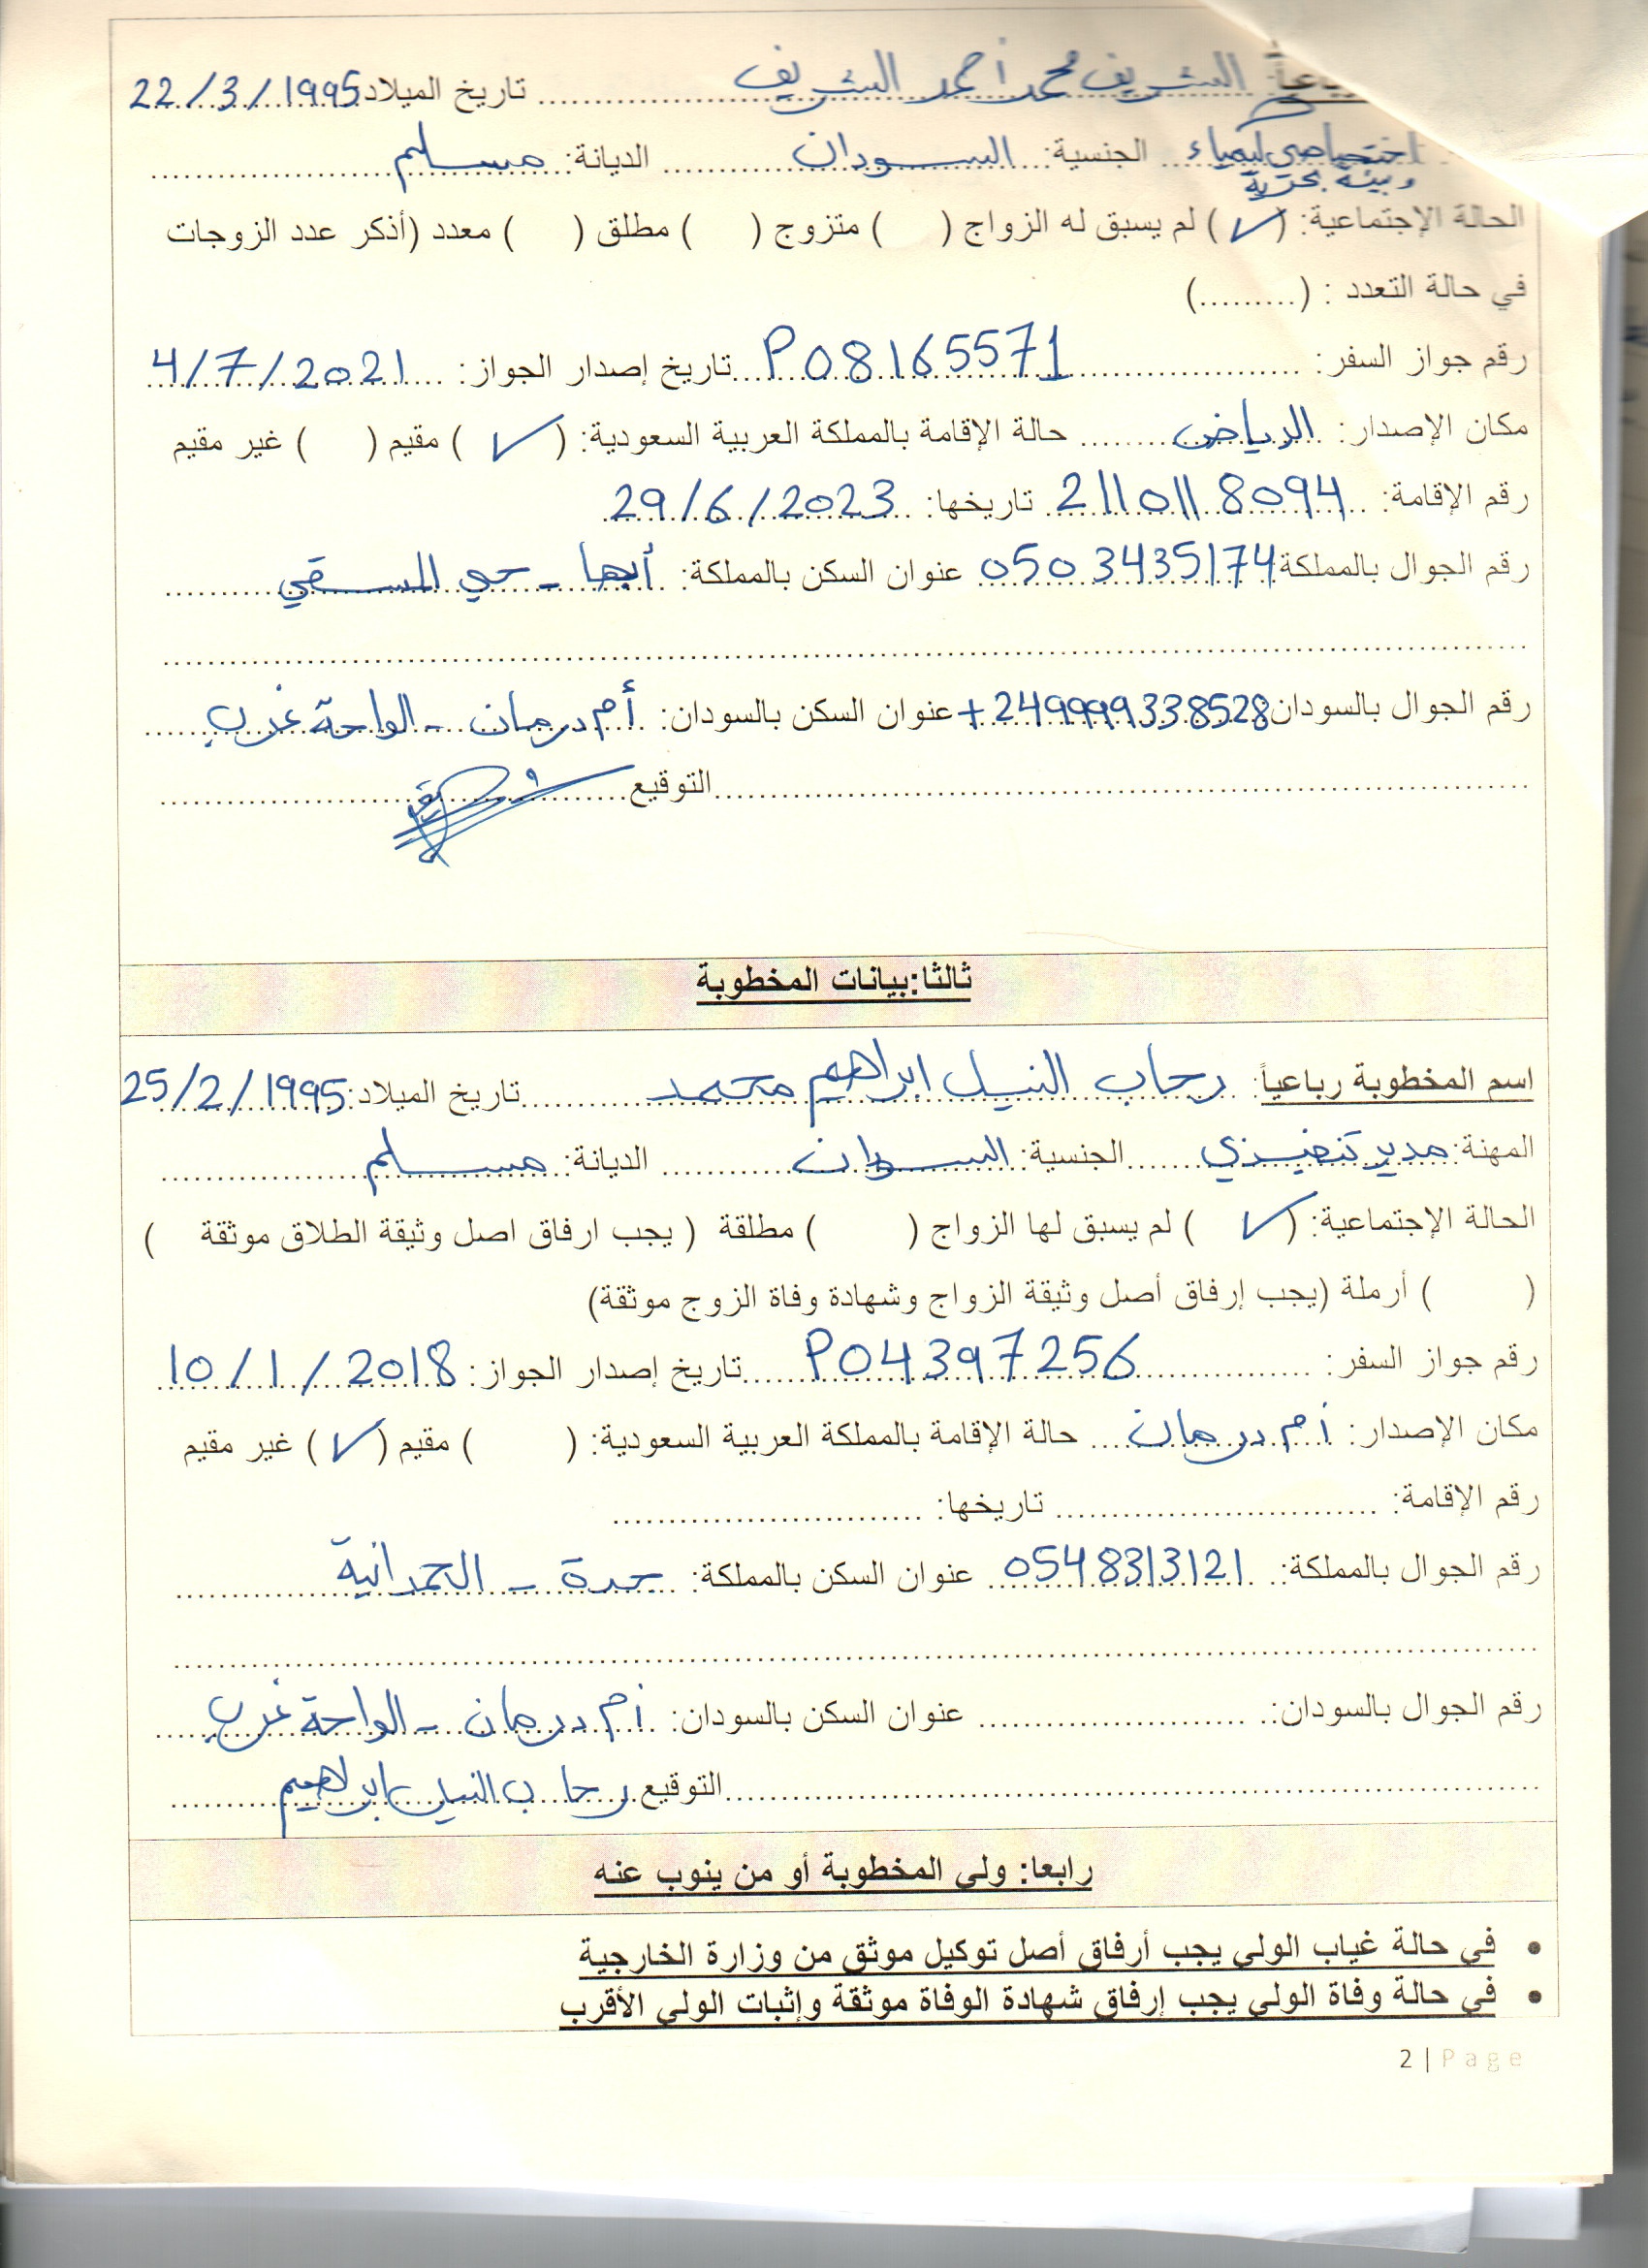 الشريف محمد أحمد الشريف ........ تاريخ الميلاد 22/3/1995
اختصاصي كيمياء الجنسية: السودان الديانة: مسلم
وبيئة بحرية
الحالة الإجتماعية: (✓) لم يسبق له الزواج ( ) متزوج ( ) مطلق ( ) معدد (أذكر عدد الزوجات
في حالة التعدد : (.........)
رقم جواز السفر: P08165571 تاريخ إصدار الجواز: 4/7/2021
مكان الإصدار: الرياض حالة الإقامة بالمملكة العربية السعودية: (✓) مقيم ( ) غير مقيم
رقم الإقامة: 2110118094 تاريخها: 29/6/2023
رقم الجوال بالمملكة 0503435174 عنوان السكن بالمملكة: أبها - حي المسقي
رقم الجوال بالسودان +249999338528 عنوان السكن بالسودان: أم درمان - الواحة غرب
التوقيع
ثالثا:بيانات المخطوبة
اسم المخطوبة رباعياً: رحاب النيل ابراهيم محمد تاريخ الميلاد: 25/2/1995
المهنة: مدير تنفيذي الجنسية: السودان الديانة: مسلم
الحالة الإجتماعية: (✓) لم يسبق لها الزواج ( ) مطلقة ( يجب ارفاق اصل وثيقة الطلاق موثقة )
( ) أرملة (يجب إرفاق أصل وثيقة الزواج وشهادة وفاة الزوج موثقة)
رقم جواز السفر: P04397256 تاريخ إصدار الجواز: 10/1/2018
مكان الإصدار: أم درمان حالة الإقامة بالمملكة العربية السعودية: ( ) مقيم (✓) غير مقيم
رقم الإقامة: ........ تاريخها: ........
رقم الجوال بالمملكة: 0548313121 عنوان السكن بالمملكة: جدة - الحمدانية
رقم الجوال بالسودان: ........ عنوان السكن بالسودان: أم درمان - الواحة غرب
التوقيع رحاب النيل ابراهيم
رابعا: ولي المخطوبة أو من ينوب عنه
• في حالة غياب الولي يجب أرفاق أصل توكيل موثق من وزارة الخارجية
• في حالة وفاة الولي يجب إرفاق شهادة الوفاة موثقة وإثبات الولي الأقرب
2 | Page